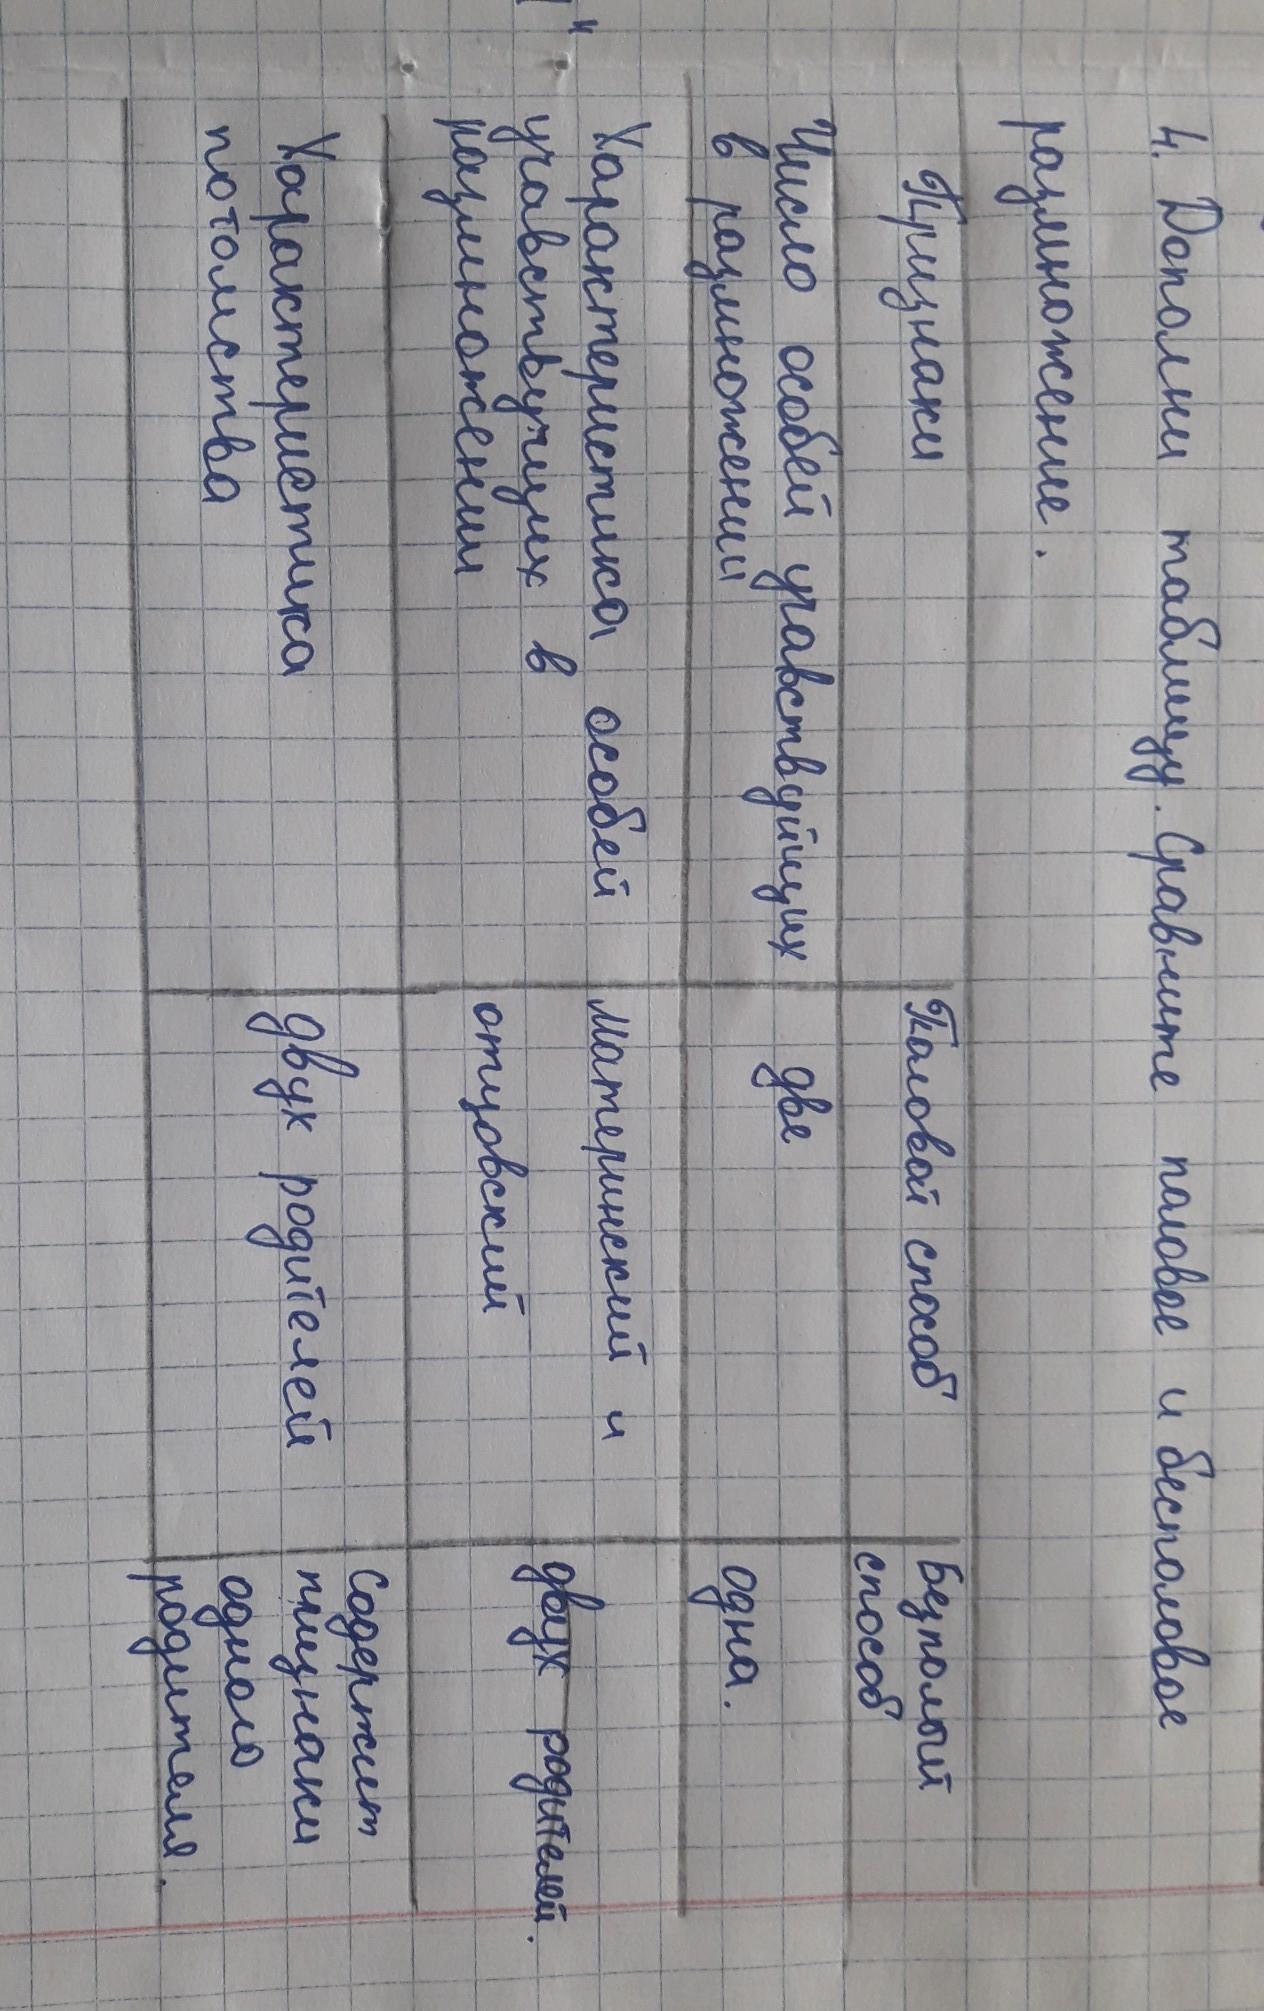 4. Дополни таблицу. Сравните половое и бесполовое
размножение.
Признаки
Половой способ
Безполый
способ
Число особей учавствуйщих
в размножении
две
одна.
Характеристика особей
учавствуущих в
размножении
материнский и
отцовский
двух родителей.
Характеристика
потомства
двух родителей
Содержит
признаки
одного
родителя.